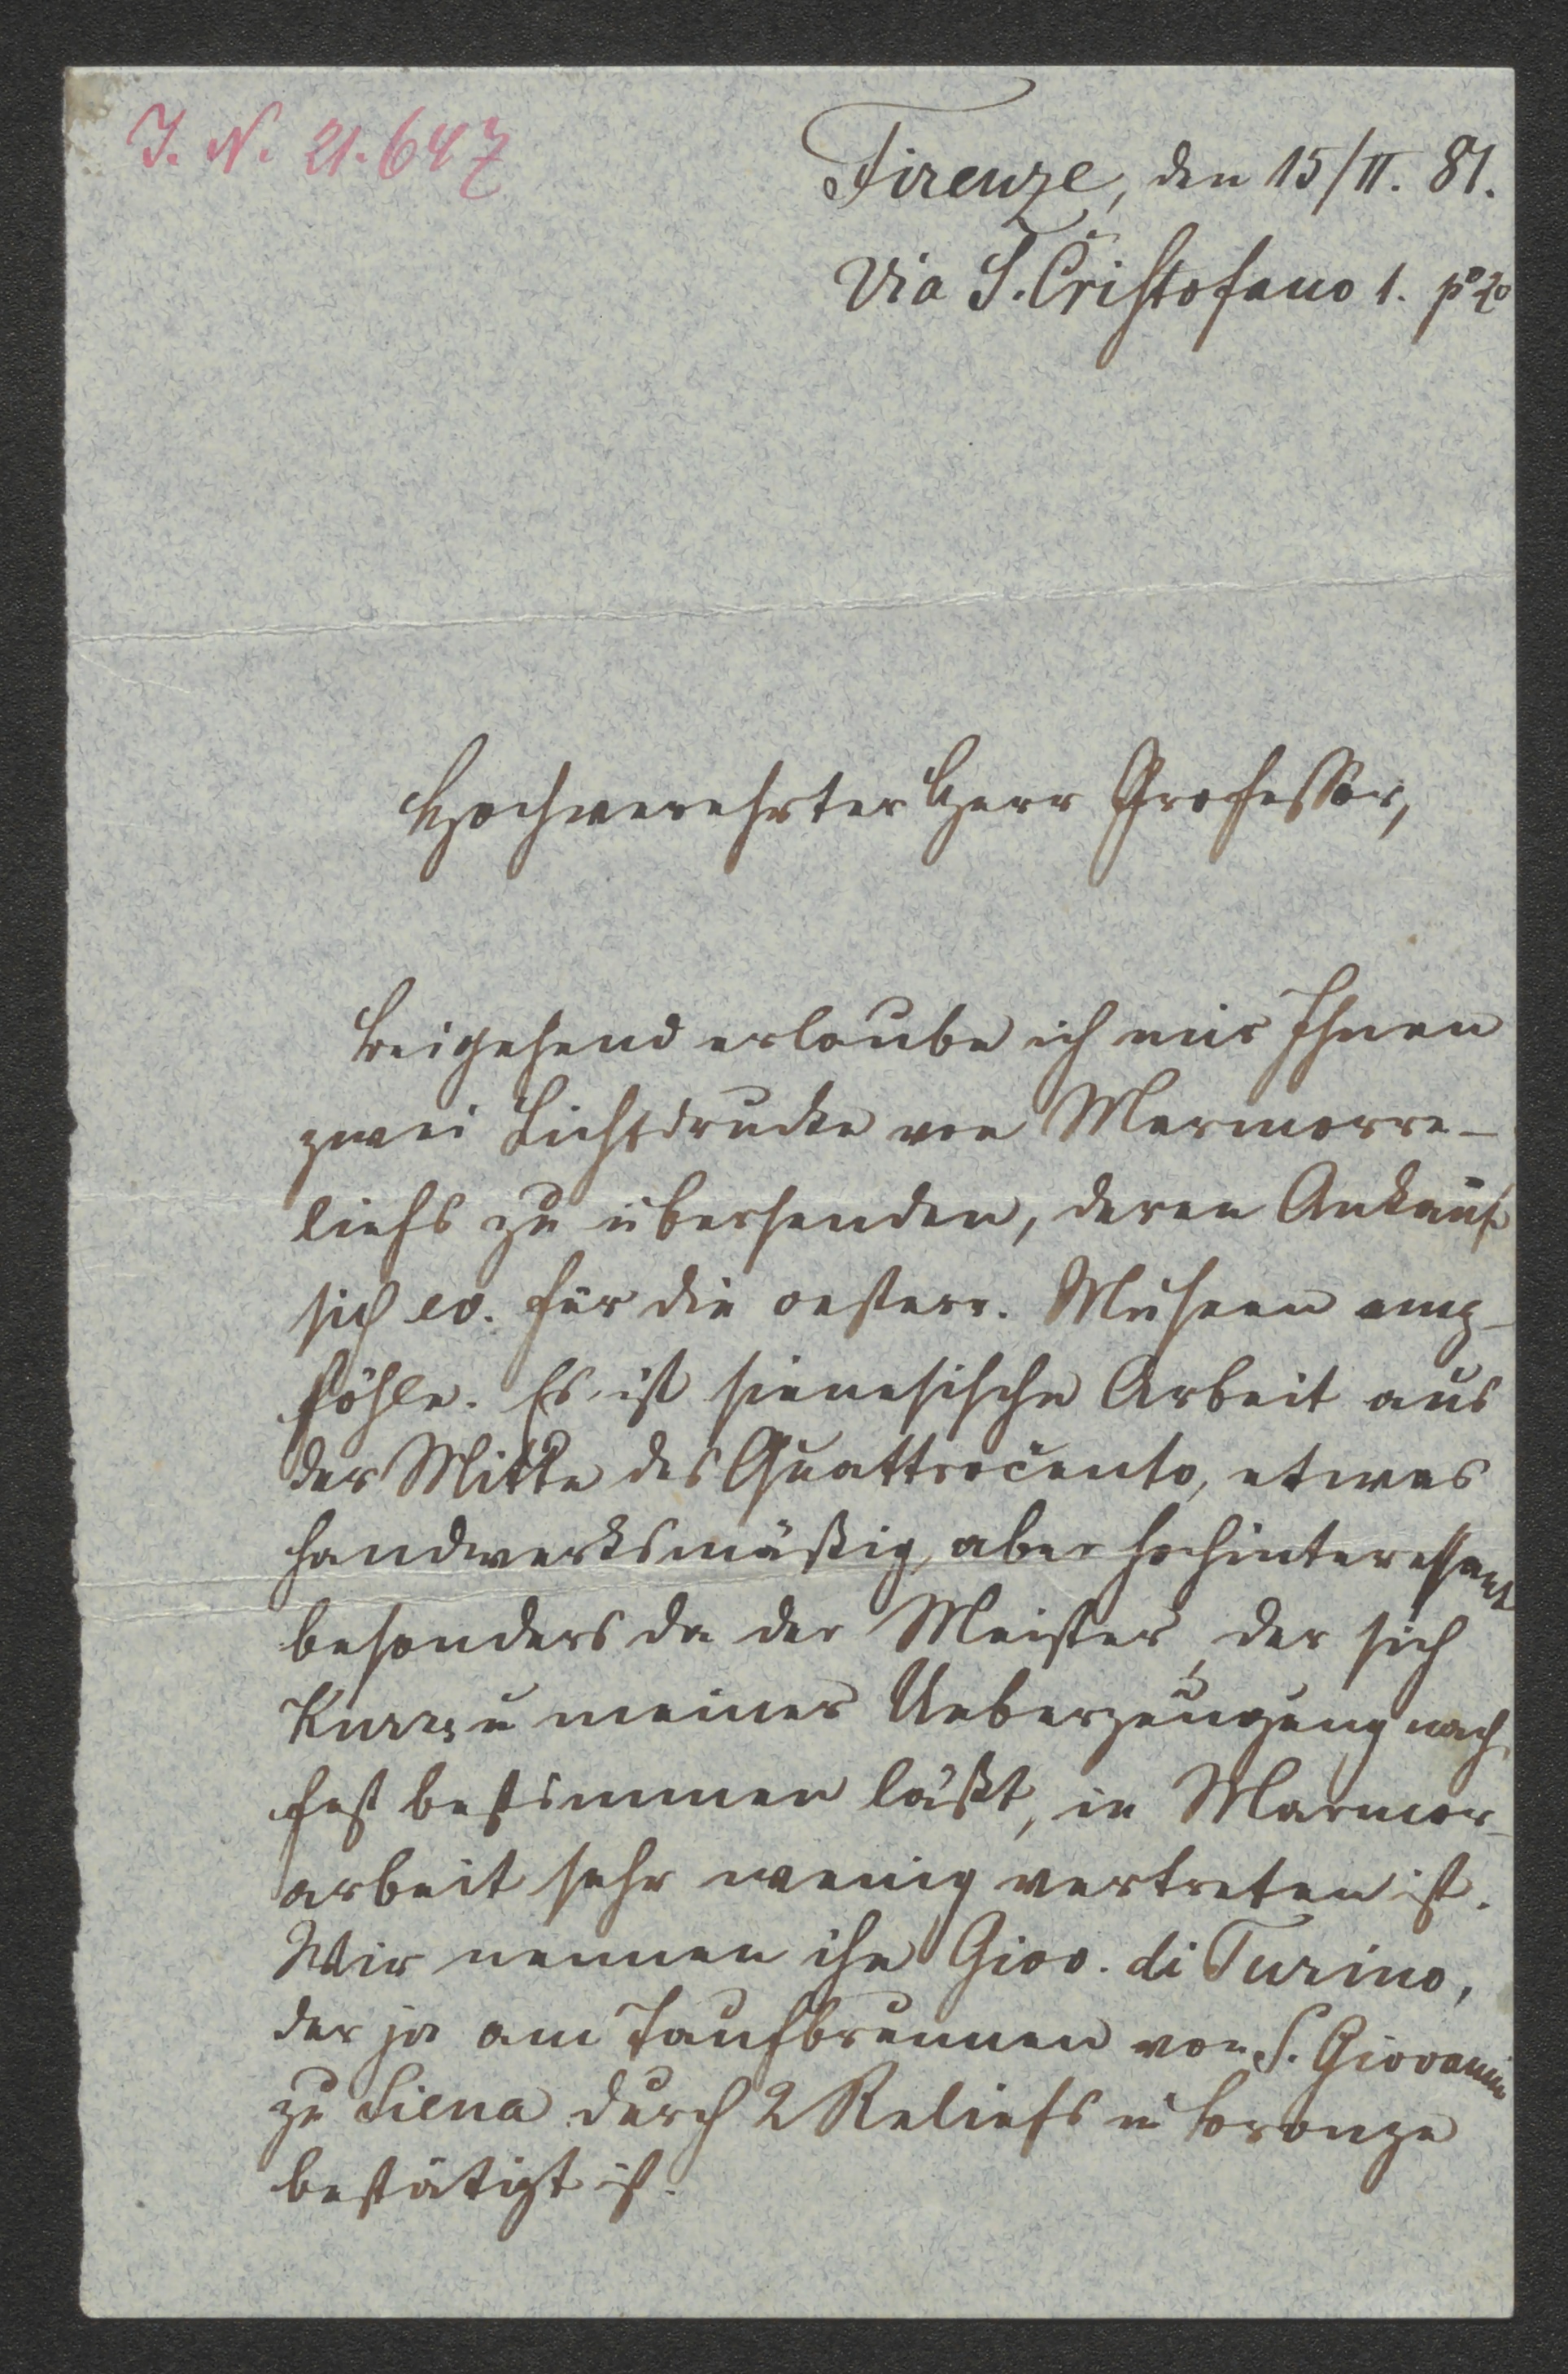 J. N. 21.647
Firenze, den 15/II. 81.
Via S. Cristofano 1. po 2o
Hochverehrter Herr Professor,
Beigehend erlaube ich mir Ihnen
zwei Lichtdrucke von Marmorre-
liefs zu übersenden, deren Ankauf
sich ev. für die oesterr. Museen emp-
föhle. Es ist sienesische Arbeit aus
der Mitte des Quattrocento, etwas
handwerksmäßig, aber hochinteressant
besonders da der Meister, der sich
meiner Ueberzeugung nach
fest bestimmen läßt, in Marmor-
arbeit sehr wenig vertreten ist.
Wir nennen ihn Giov. di Turino,
der ja am Taufbrunnen von S. Giovanni
zu Siena durch 2 Reliefs in Bronze
bestätigt ist.